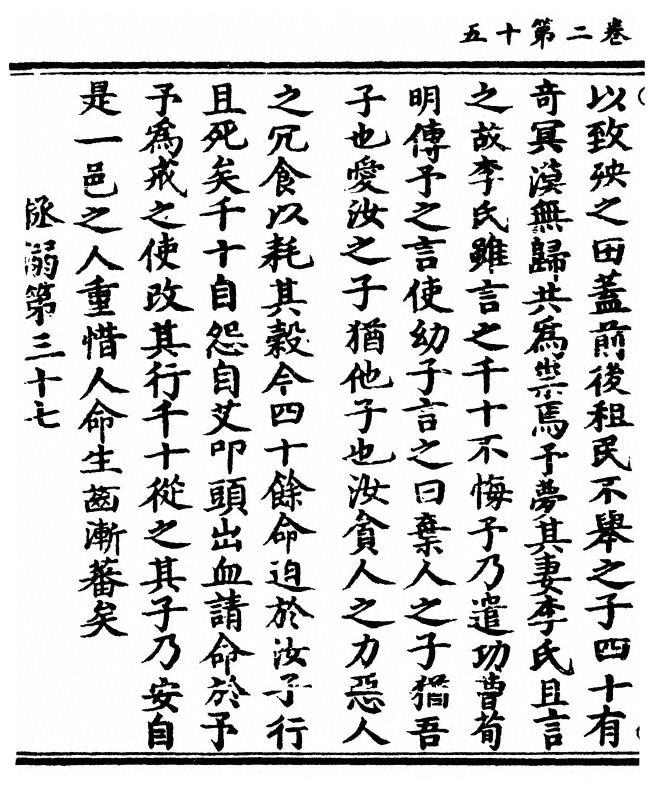 卷二第十五
以致殃之田蓋前後租民不舉之子四十有
奇冥漠無歸共為祟焉予夢其妻李氏且言
之故李氏雖言之千十不悔予乃遣功曹荀
明傳予之言使幼子言之曰棄人之子猶吾
子也愛汝之子猶他子也汝貪人之力惡人
之冗食以耗其穀今四十餘命迫於汝子行
且死矣千十自怨自艾叩頭出血請命於予
予為戒之使改其行千十從之其子乃安自
是一邑之人重惜人命生齒漸蕃矣
拯溺第三十七